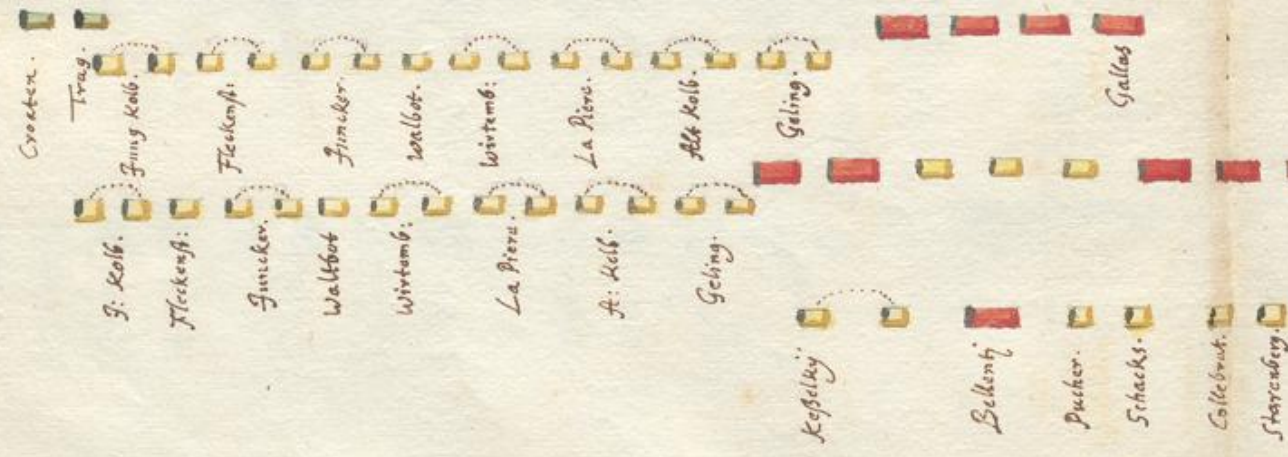 Croaten.
Trag.
Jung Kolb.
Fleckenst:
Juncker.
Walbot.
Wirtemb:
La Piere.
Alt Kolb.
Geling.
Gallas
J: Kolb.
Fleckenst:
Juncker.
Waltbot
Wirtemb:
La Piere.
A: Kolb.
Geling.
Keßelkÿ
Pucher.
Schacks.
Starenberg.